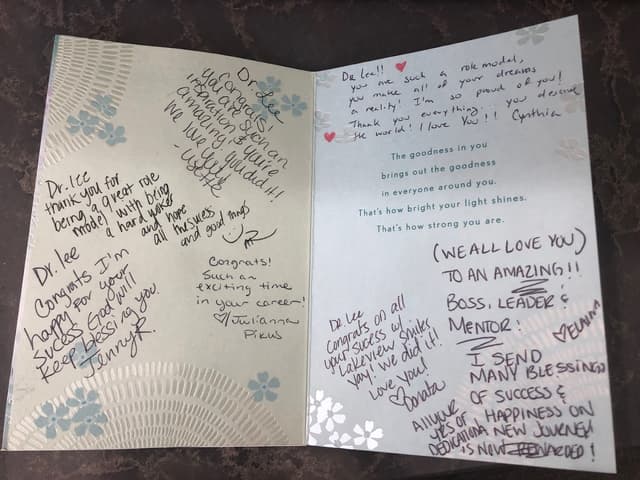 Dr. Lee
Congrats!
You are such an
inspiration & you're
amazing,
We love you!
You did it!
Dr. Lee
thank you for
being a great role
model with being
a hard worker
and hope
all the sucess
and good things
Dr. Lee
Congrats I'm
happy for your
sucess God will
keep blessing you
Jenny R.
Congrats!
Such an
exciting time
in your career!
♡ Julianna
Pikus
Dr. Lee!! ♥
you are such a role model,
you make all of your dreams
a reality! I'm so proud of you!
Thank you everything... you deserve
the world! I love You!! Cynthia
The goodness in you
brings out the goodness
in everyone around you.
That's how bright your light shines.
That's how strong you are.
(WE ALL LOVE YOU)
TO AN AMAZING!!
BOSS, LEADER &
MENTOR!
I SEND
MANY BLESSINGS
OF SUCCESS &
HAPPINESS ON
A NEW JOURNEY
All your
yrs of
DEDICATION
IS NOW REWARDED!
Dr. Lee
Congrats on all
your sucess w/
Lakeview Smiles
Yay! We did it!
Love you!
♡ Donata